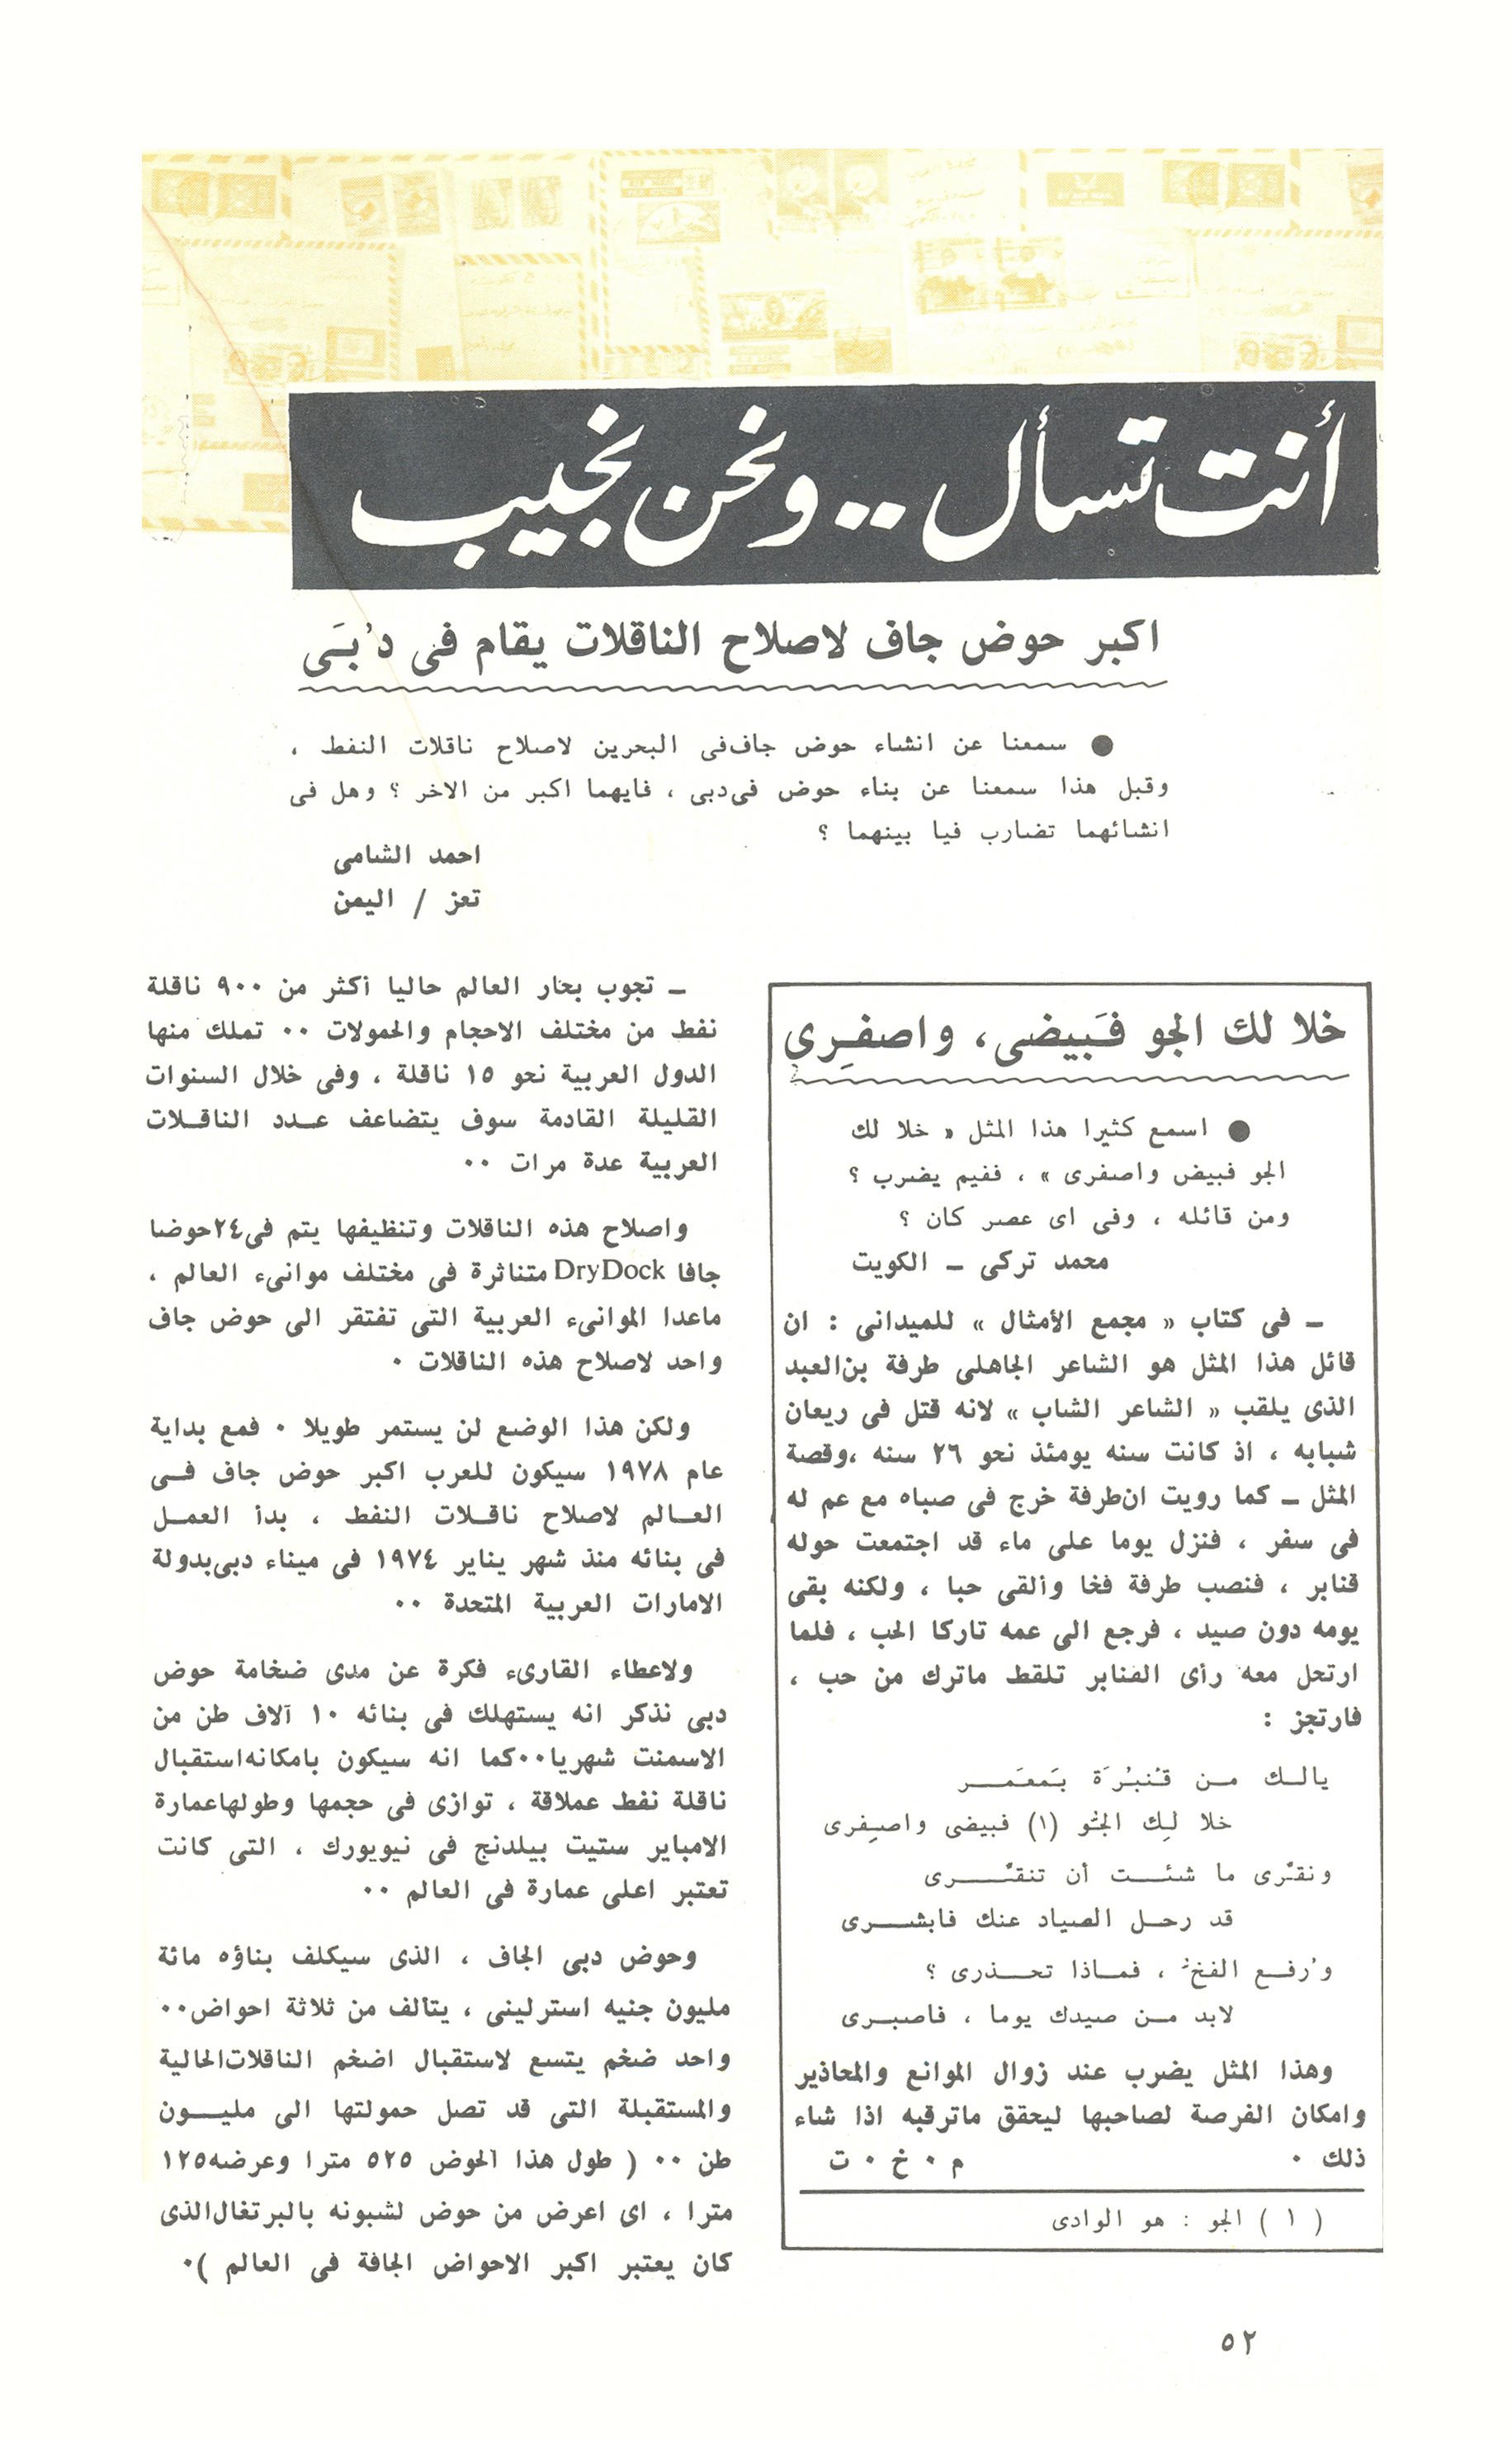 أنت تسأل .. ونحن نجيب
اكبر حوض جاف لاصلاح الناقلات يقام فى دُبَى
● سمعنا عن انشاء حوض جاف فى البحرين لاصلاح ناقلات النفط ،
وقبل هذا سمعنا عن بناء حوض فى دبى ، فايهما اكبر من الاخر ؟ وهل فى
انشائهما تضارب فيا بينهما ؟
احمد الشامى
تعز / اليمن
خلا لك الجو فَبيضى، واصفِرى
● اسمع كثيرا هذا المثل « خلا لك
الجو فبيض واصفرى » ، ففيم يضرب ؟
ومن قائله ، وفى اى عصر كان ؟
محمد تركى ــ الكويت
ــ فى كتاب « مجمع الأمثال » للميدانى : ان
قائل هذا المثل هو الشاعر الجاهلى طرفة بن العبد
الذى يلقب « الشاعر الشاب » لانه قتل فى ريعان
شبابه ، اذ كانت سنه يومئذ نحو ٢٦ سنه ،وقصة
المثل ــ كما رويت ان طرفة خرج فى صباه مع عم له
فى سفر ، فنزل يوما على ماء قد اجتمعت حوله
قنابر ، فنصب طرفة فخا وألقى حبا ، ولكنه بقى
يومه دون صيد ، فرجع الى عمه تاركا الحب ، فلما
ارتحل معه رأى القنابر تلقط ماترك من حب ،
فارتجز :
يالـك مـن قُنبُرَة بمَعمَـر
خلا لك الجو (١) فبيضى واصفِرى
ونقّرى ما شئـت أن تنقـّـرى
قد رحـل الصياد عنك فابشـرى
ورُفـع الفخ ، فمـاذا تحـذرى ؟
لابد مـن صيدك يوما ، فاصبـرى
وهذا المثل يضرب عند زوال الموانع والمحاذير
وامكان الفرصة لصاحبها ليحقق ماترقبه اذا شاء
ذلك ٠ م ٠ خ ٠ ت
( ١ ) الجو : هو الوادى
ــ تجوب بحار العالم حاليا أكثر من ٩٠٠ ناقلة
نفط من مختلف الاحجام والحمولات ٠٠ تملك منها
الدول العربية نحو ١٥ ناقلة ، وفى خلال السنوات
القليلة القادمة سوف يتضاعف عـدد الناقـلات
العربية عدة مرات ٠٠
واصلاح هذه الناقلات وتنظيفها يتم فى ٢٤ حوضا
جافا DryDock متناثرة فى مختلف موانىء العالم ،
ماعدا الموانىء العربية التى تفتقر الى حوض جاف
واحد لاصلاح هذه الناقلات ٠
ولكن هذا الوضع لن يستمر طويلا ٠ فمع بداية
عام ١٩٧٨ سيكون للعرب اكبر حوض جاف فـى
العـالم لاصلاح ناقـلات النفط ، بدأ العمـل
فى بنائه منذ شهر يناير ١٩٧٤ فى ميناء دبى بدولة
الامارات العربية المتحدة ٠٠
ولاعطاء القارىء فكرة عن مدى ضخامة حوض
دبى نذكر انه يستهلك فى بنائه ١٠ آلاف طن من
الاسمنت شهريا٠٠كما انه سيكون بامكانه استقبال
ناقلة نفط عملاقة ، توازى فى حجمها وطولها عمارة
الامباير ستيت بيلدنج فى نيويورك ، التى كانت
تعتبر اعلى عمارة فى العالم ٠٠
وحوض دبى الجاف ، الذى سيكلف بناؤه مائة
مليون جنيه استرلينى ، يتالف من ثلاثة احواض٠٠
واحد ضخم يتسع لاستقبال اضخم الناقلات الحالية
والمستقبلة التى قد تصل حمولتها الى مليـون
طن ٠٠ ( طول هذا الحوض ٥٢٥ مترا وعرضه ١٢٥
مترا ، اى اعرض من حوض لشبونه بالبرتغال الذى
كان يعتبر اكبر الاحواض الجافة فى العالم )٠
٥٢